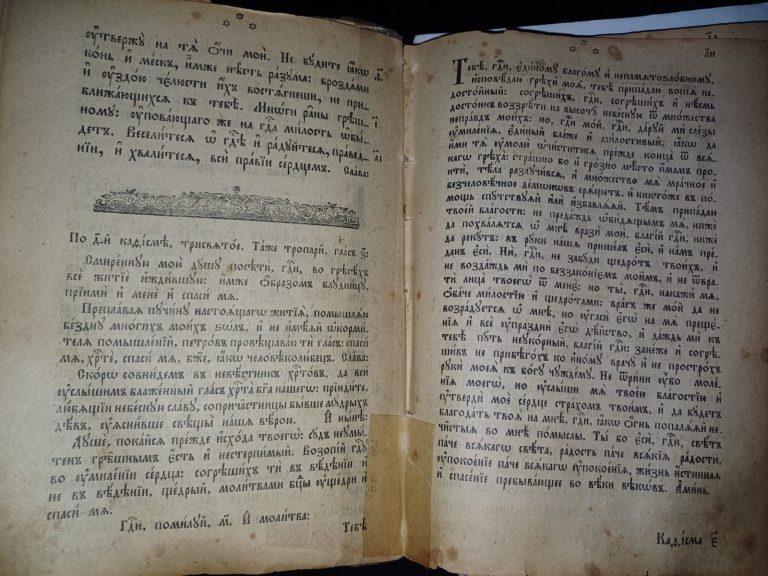 ᲂу҆твержꙋ̀ на тѧ̀ ѻ҆́чи моѝ. Не бꙋ́дите ꙗ҆́кѡ
ко́нь и҆ ме́скъ, и҆̀мже нѣ́сть ра́зꙋма: брозда́ми
и҆ ᲂу҆здо́ю че́люсти и҆́хъ востѧ́гнеши, не при-
ближа́ющихсѧ къ тебѣ̀. Мнѡ́ги ра̑ны грѣ́ш-
номꙋ: ᲂу҆пова́ющаго же на гдⷭ҇а ми́лость ѡ҆бы́-
детъ. Весели́тесѧ ѡ҆ гдⷭ҇ѣ и҆ ра́дꙋйтесѧ, пра́вед-
нїи, и҆ хвали́тесѧ, всѝ пра́вїи се́рдцемъ. Сла́ва:
По д҃-й каѳі́смѣ, трист҃о́е. Та́же тропарѝ, гла́съ з҃:
Смире́ннꙋю мою̀ дꙋ́шꙋ посѣтѝ, гдⷭ҇и, во грѣсѣ́хъ
всѐ житїѐ и҆жди́вшꙋю: и҆́мже ѻ҆́бразомъ блꙋдни́цꙋ,
прїимѝ и҆ менѐ и҆ спасѝ мѧ̀.
Преплава́ѧ пꙋчи́нꙋ настоѧ́щагѡ житїѧ̀, помышлѧ́ю
бе́зднꙋ мно́гихъ мои́хъ ѕѡ́лъ, и҆ не и҆мѣ́ѧй ѡ҆корми́-
телѧ помышле́нїй, петро́въ провѣщава́ю ти̑ гла́съ: спаси́
мѧ, хрⷭ҇тѐ, спаси́ мѧ, бж҃е, ꙗ҆́кѡ человѣколю́бецъ. Сла́ва:
Ско́рѡ совни́демъ въ невѣ́стникъ хрⷭ҇то́въ, да всѝ
ᲂу҆слы́шимъ блаже́нный гла́съ хрⷭ҇та̀ бг҃а на́шегѡ: прїиди́те,
лю́бѧщїи небе́снꙋю сла́вꙋ, соприча́стницы бы́вше мꙋ́дрыхъ
дѣ́въ, ᲂу҆ѧсни́вше свѣщы̀ на́шѧ вѣ́рою. И҆ ны́нѣ:
Дꙋшѐ, пока́йсѧ пре́жде и҆схо́да твоегѡ̀: сꙋ́дъ неꙋмы́-
тенъ грѣ́шнымъ є҆́сть и҆ нестерпи́мый. Возопі́й гдⷭ҇ꙋ
во ᲂу҆миле́нїи се́рдца: согрѣши́хъ ти̑ въ вѣ́дѣнїи и҆
не въ вѣ́дѣнїи, ще́дрый, моли́твами бцⷣы ᲂу҆ще́дри и҆
спаси́ мѧ.
Гдⷭ҇и, поми́лꙋй, м҃. И҆ моли́тва:
Тебѣ̀
и҃і
Тебѣ̀, гдⷭ҇и, є҆ди́номꙋ благо́мꙋ и҆ непамѧтоѕло́бномꙋ,
и҆сповѣ́даю грѣхѝ моѧ̑, тебѣ̀ припа́даю вопїѧ̀ не-
досто́йный: согрѣши́хъ, гдⷭ҇и, согрѣши́хъ и҆ нѣ́смь
досто́инъ воззрѣ́ти на высотꙋ̀ небе́снꙋю ѿ мно́жества
непра́вдъ мои́хъ: но, гдⷭ҇и мо́й, гдⷭ҇и, да́рꙋй мѝ сле́зы
ᲂу҆миле́нїѧ, є҆ди́ный бла́же и҆ млⷭ҇тивый, ꙗ҆́кѡ да
и҆́ми тѧ̀ ᲂу҆молю̀ ѡ҆чи́ститисѧ пре́жде конца̀ ѿ всѧ́-
кагѡ грѣха̀: стра́шно бо и҆ гро́зно мѣ́сто и҆́мамъ про-
итѝ, тѣ́ла разлꙋчи́всѧ, и҆ мно́жество мѧ̀ мра́чное и҆
безчеловѣ́чное де́мѡнѡвъ срѧ́щетъ, и҆ никто́же въ по́-
мощь спꙋ́тствꙋѧй и҆лѝ и҆збавлѧ́ѧй. Тѣ́мъ припа́даю
твое́й бла́гости: не преда́ждь ѡ҆би́дѧщымъ мѧ̀, нижѐ
да похва́лѧтсѧ ѡ҆ мнѣ̀ вразѝ моѝ, благі́й гдⷭ҇и, нижѐ
да рекꙋ́тъ: въ рꙋ́ки на́шѧ прише́лъ є҆сѝ, и҆ на́мъ пре́-
данъ є҆сѝ. Ни, гдⷭ҇и, не забꙋ́ди щедро́тъ твои́хъ, и҆
не возда́ждь мѝ по беззако́нїємъ мои̑мъ, и҆ не ѿвра-
тѝ лица̀ твоегѡ̀ ѿ менє̀: но ты̀, гдⷭ҇и, накажи́ мѧ,
ѻ҆ба́че ми́лостїю и҆ щедро́тами: вра́гъ же мо́й да не
возра́дꙋетсѧ ѡ҆ мнѣ̀, но ᲂу҆гасѝ є҆гѡ̀ на мѧ̀ преще́-
нїѧ и҆ всѐ ᲂу҆праздни́ є҆гѡ̀ дѣ́йство, и҆ да́ждь мѝ къ
тебѣ̀ пꙋ́ть неꙋко́рный, благі́й гдⷭ҇и: зане́же и҆ согрѣ-
ши́въ не прибѣго́хъ ко и҆но́мꙋ врачꙋ̀ и҆ не простро́хъ
рꙋки̑ моеѧ̀ къ бо́гꙋ чꙋжде́мꙋ. Не ѿри́ни ᲂу҆̀бо моле́-
нїѧ моегѡ̀, но ᲂу҆слы́ши мѧ̀ твое́ю бла́гостїю и҆
ᲂу҆твердѝ моѐ се́рдце стра́хомъ твои́мъ, и҆ да бꙋ́детъ
благода́ть твоѧ̀ на мнѣ̀, гдⷭ҇и, ꙗ҆́кѡ ѻ҆́гнь попалѧ́ѧй не-
чи̑стыѧ во мнѣ̀ по́мыслы. Ты́ бо є҆сѝ, гдⷭ҇и, свѣ́тъ
па́че всѧ́кагѡ свѣ́та, ра́дость па́че всѧ́кїѧ ра́дости,
ᲂу҆покое́нїе па́че всѧ́кагѡ ᲂу҆покое́нїѧ, жи́знь и҆́стиннаѧ
и҆ спасе́нїе пребыва́ющее во вѣ́ки вѣкѡ́въ. А҆ми́нь.
Каѳі́сма є҃